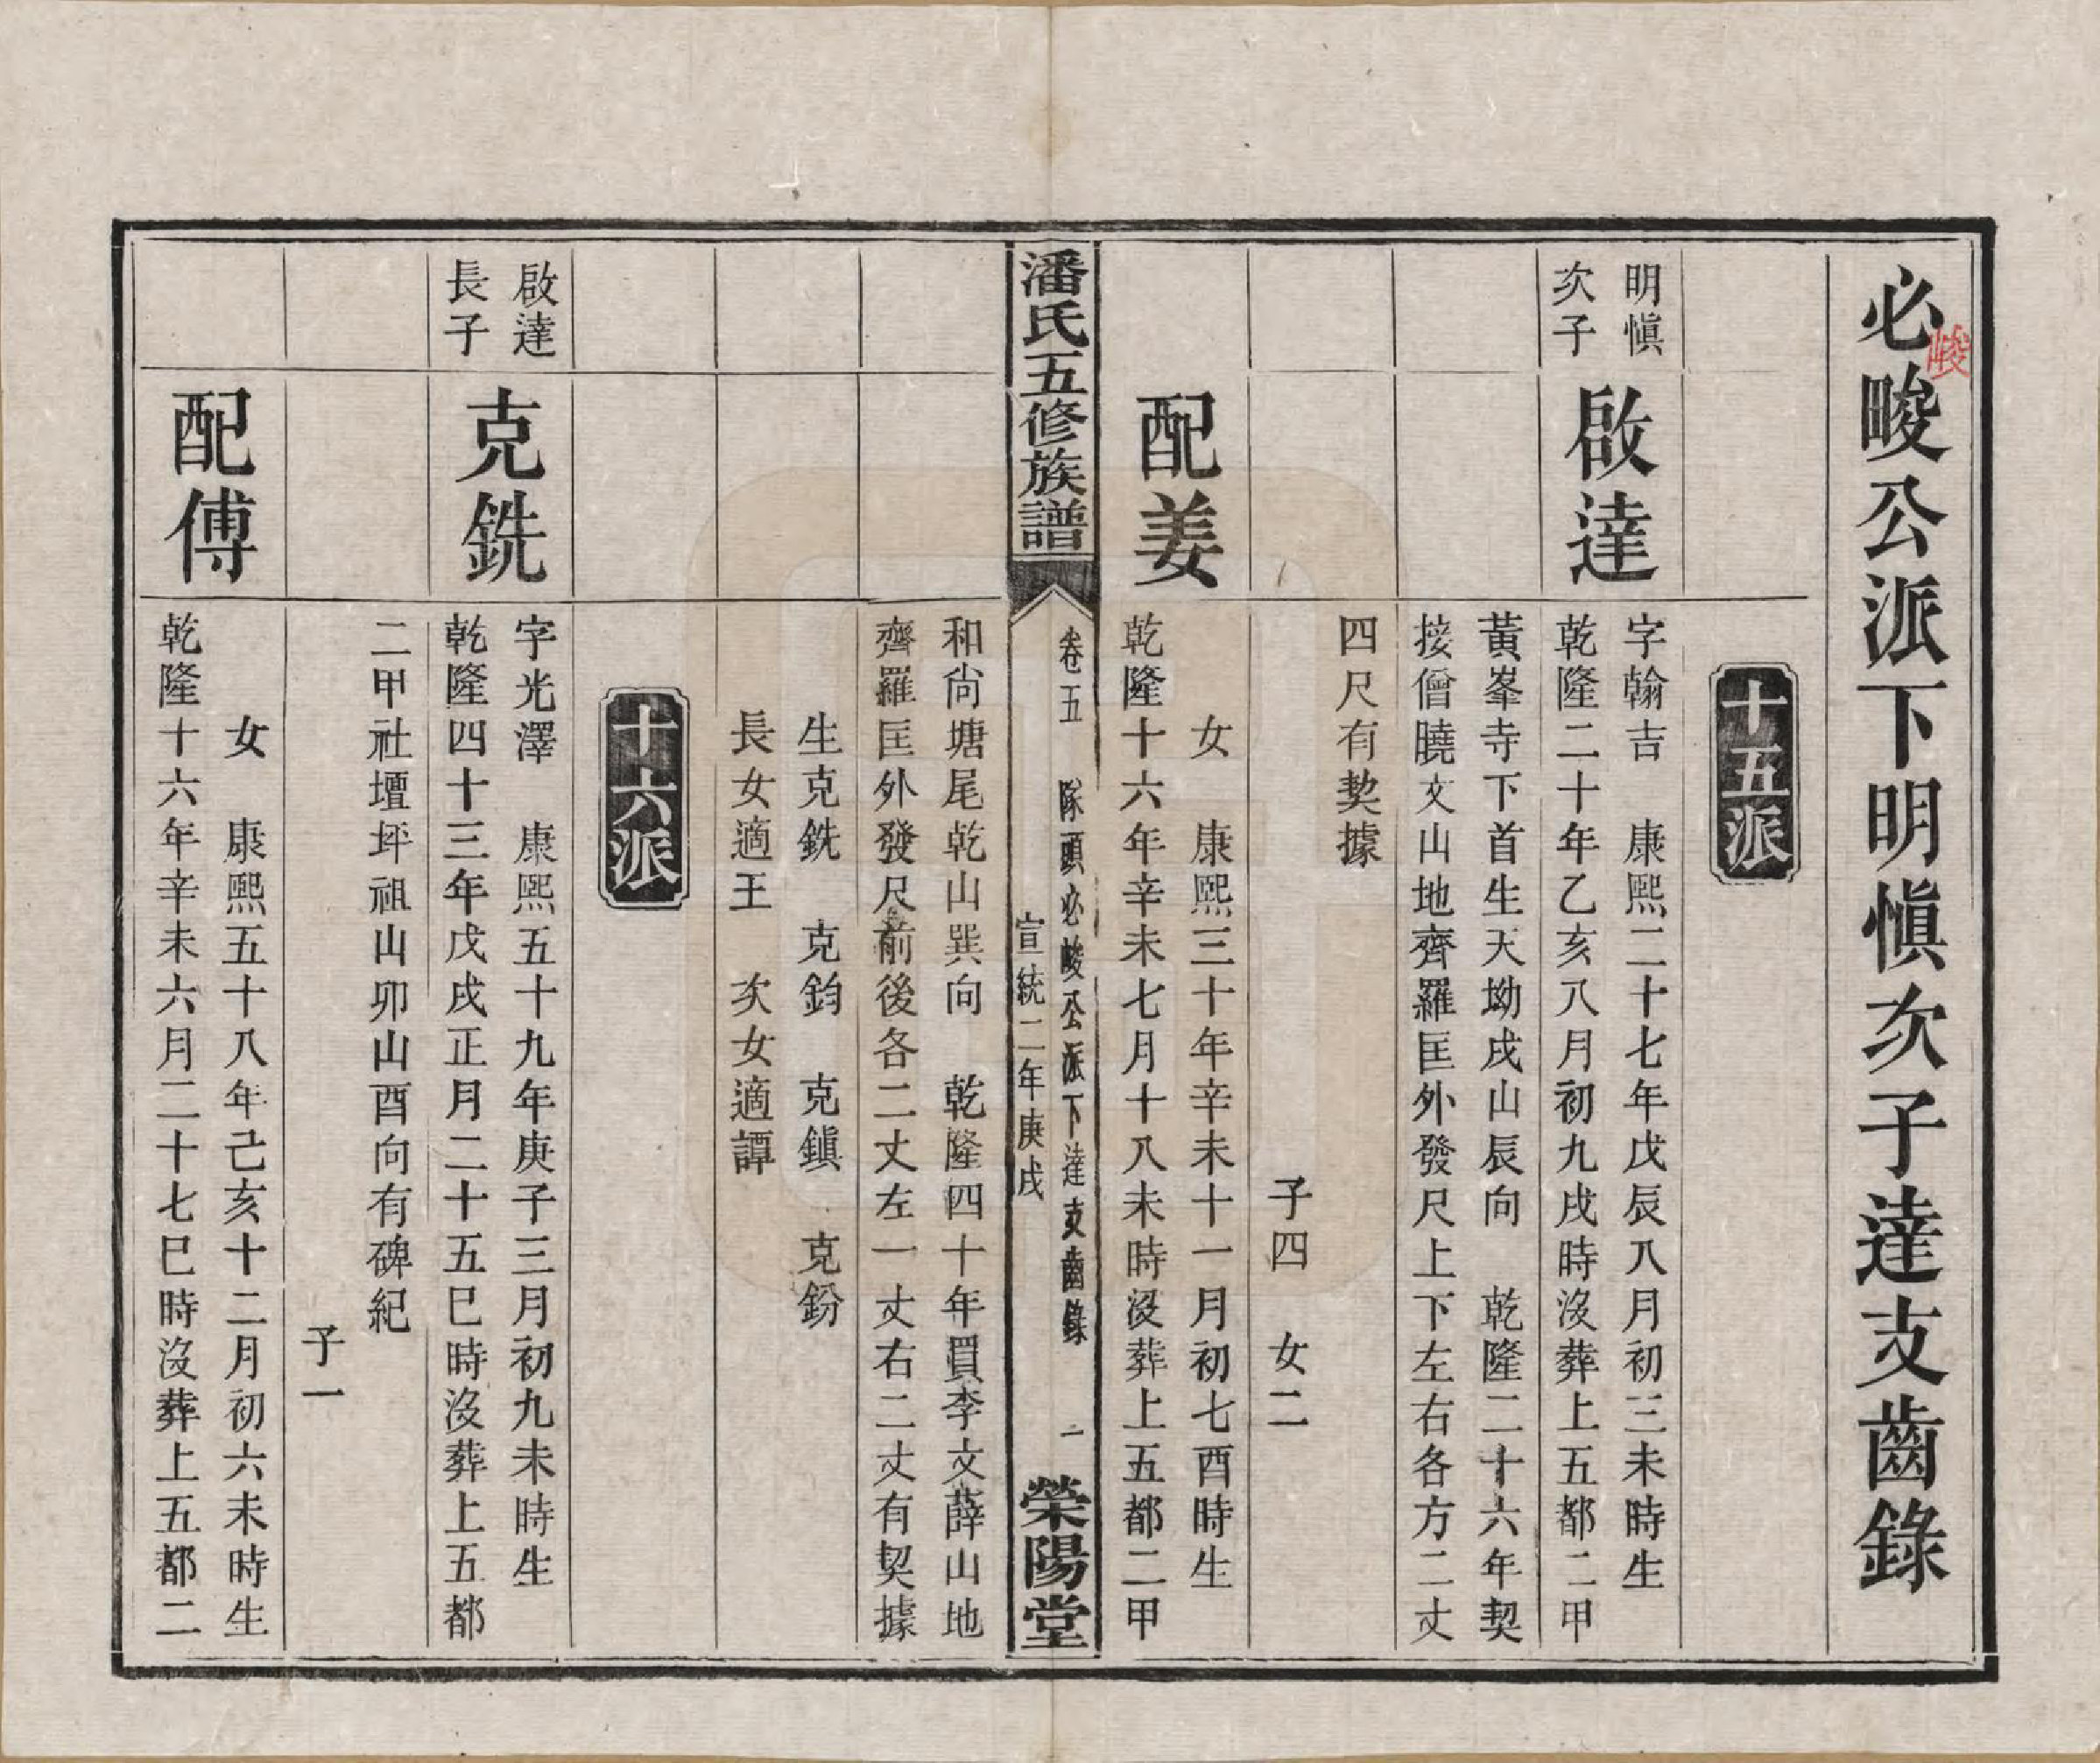 必畯公派下明愼次子達支齒錄
峻
十五派
明愼
次子
啟達
字翰吉 康熙二十七年戊辰八月初三未時生
乾隆二十年乙亥八月初九戌時沒葬上五都二甲
黃峯寺下首生天坳戌山辰向 乾隆二十六年契
接僧曉文山地齊羅匡外發尺上下左右各方二丈
四尺有契據
子四 女二
配姜
女 康熙三十年辛未十一月初七酉時生
乾隆十六年辛未七月十八未時沒葬上五都二甲
潘氏五修族譜
卷五 隊頭必畯公派下達支齒錄 一
宣統二年庚戌
榮陽堂
和尙塘尾乾山巽向 乾隆四十年買李文薛山地
齊羅匡外發尺前後各二丈左一丈右二丈有契據
生克銑 克鈞 克鎭 克鈖
長女適王 次女適譚
十六派
啟達
長子
克銑
字光澤 康熙五十九年庚子三月初九未時生
乾隆四十三年戊戌正月二十五巳時沒葬上五都
二甲社壇坪祖山卯山酉向有碑紀
子一
配傅
女 康熙五十八年己亥十二月初六未時生
乾隆十六年辛未六月二十七巳時沒葬上五都二